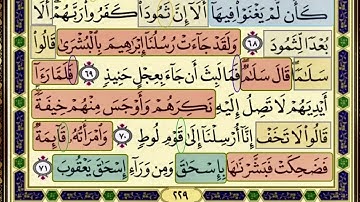 كَأَن لَّمْ يَغْنَوْا۟ فِيهَآ أَلَآ إِنَّ ثَمُودَا۟ كَفَرُوا۟ رَبَّهُمْ أَلَا
بُعْدًا لِّثَمُودَ ٦٨ وَلَقَدْ جَآءَتْ رُسُلُنَآ إِبْرَٰهِيمَ بِٱلْبُشْرَىٰ قَالُوا۟
سَلَٰمًا قَالَ سَلَٰمٌ فَمَا لَبِثَ أَن جَآءَ بِعِجْلٍ حَنِيذٍ ٦٩ فَلَمَّا رَءَآ
أَيْدِيَهُمْ لَا تَصِلُ إِلَيْهِ نَكِرَهُمْ وَأَوْجَسَ مِنْهُمْ خِيفَةً
قَالُوا۟ لَا تَخَفْ إِنَّآ أُرْسِلْنَآ إِلَىٰ قَوْمِ لُوطٍ ٧٠ وَٱمْرَأَتُهُۥ قَآئِمَةٌ
فَضَحِكَتْ فَبَشَّرْنَٰهَا بِإِسْحَٰقَ وَمِن وَرَآءِ إِسْحَٰقَ يَعْقُوبَ ٧١
٢٢٩